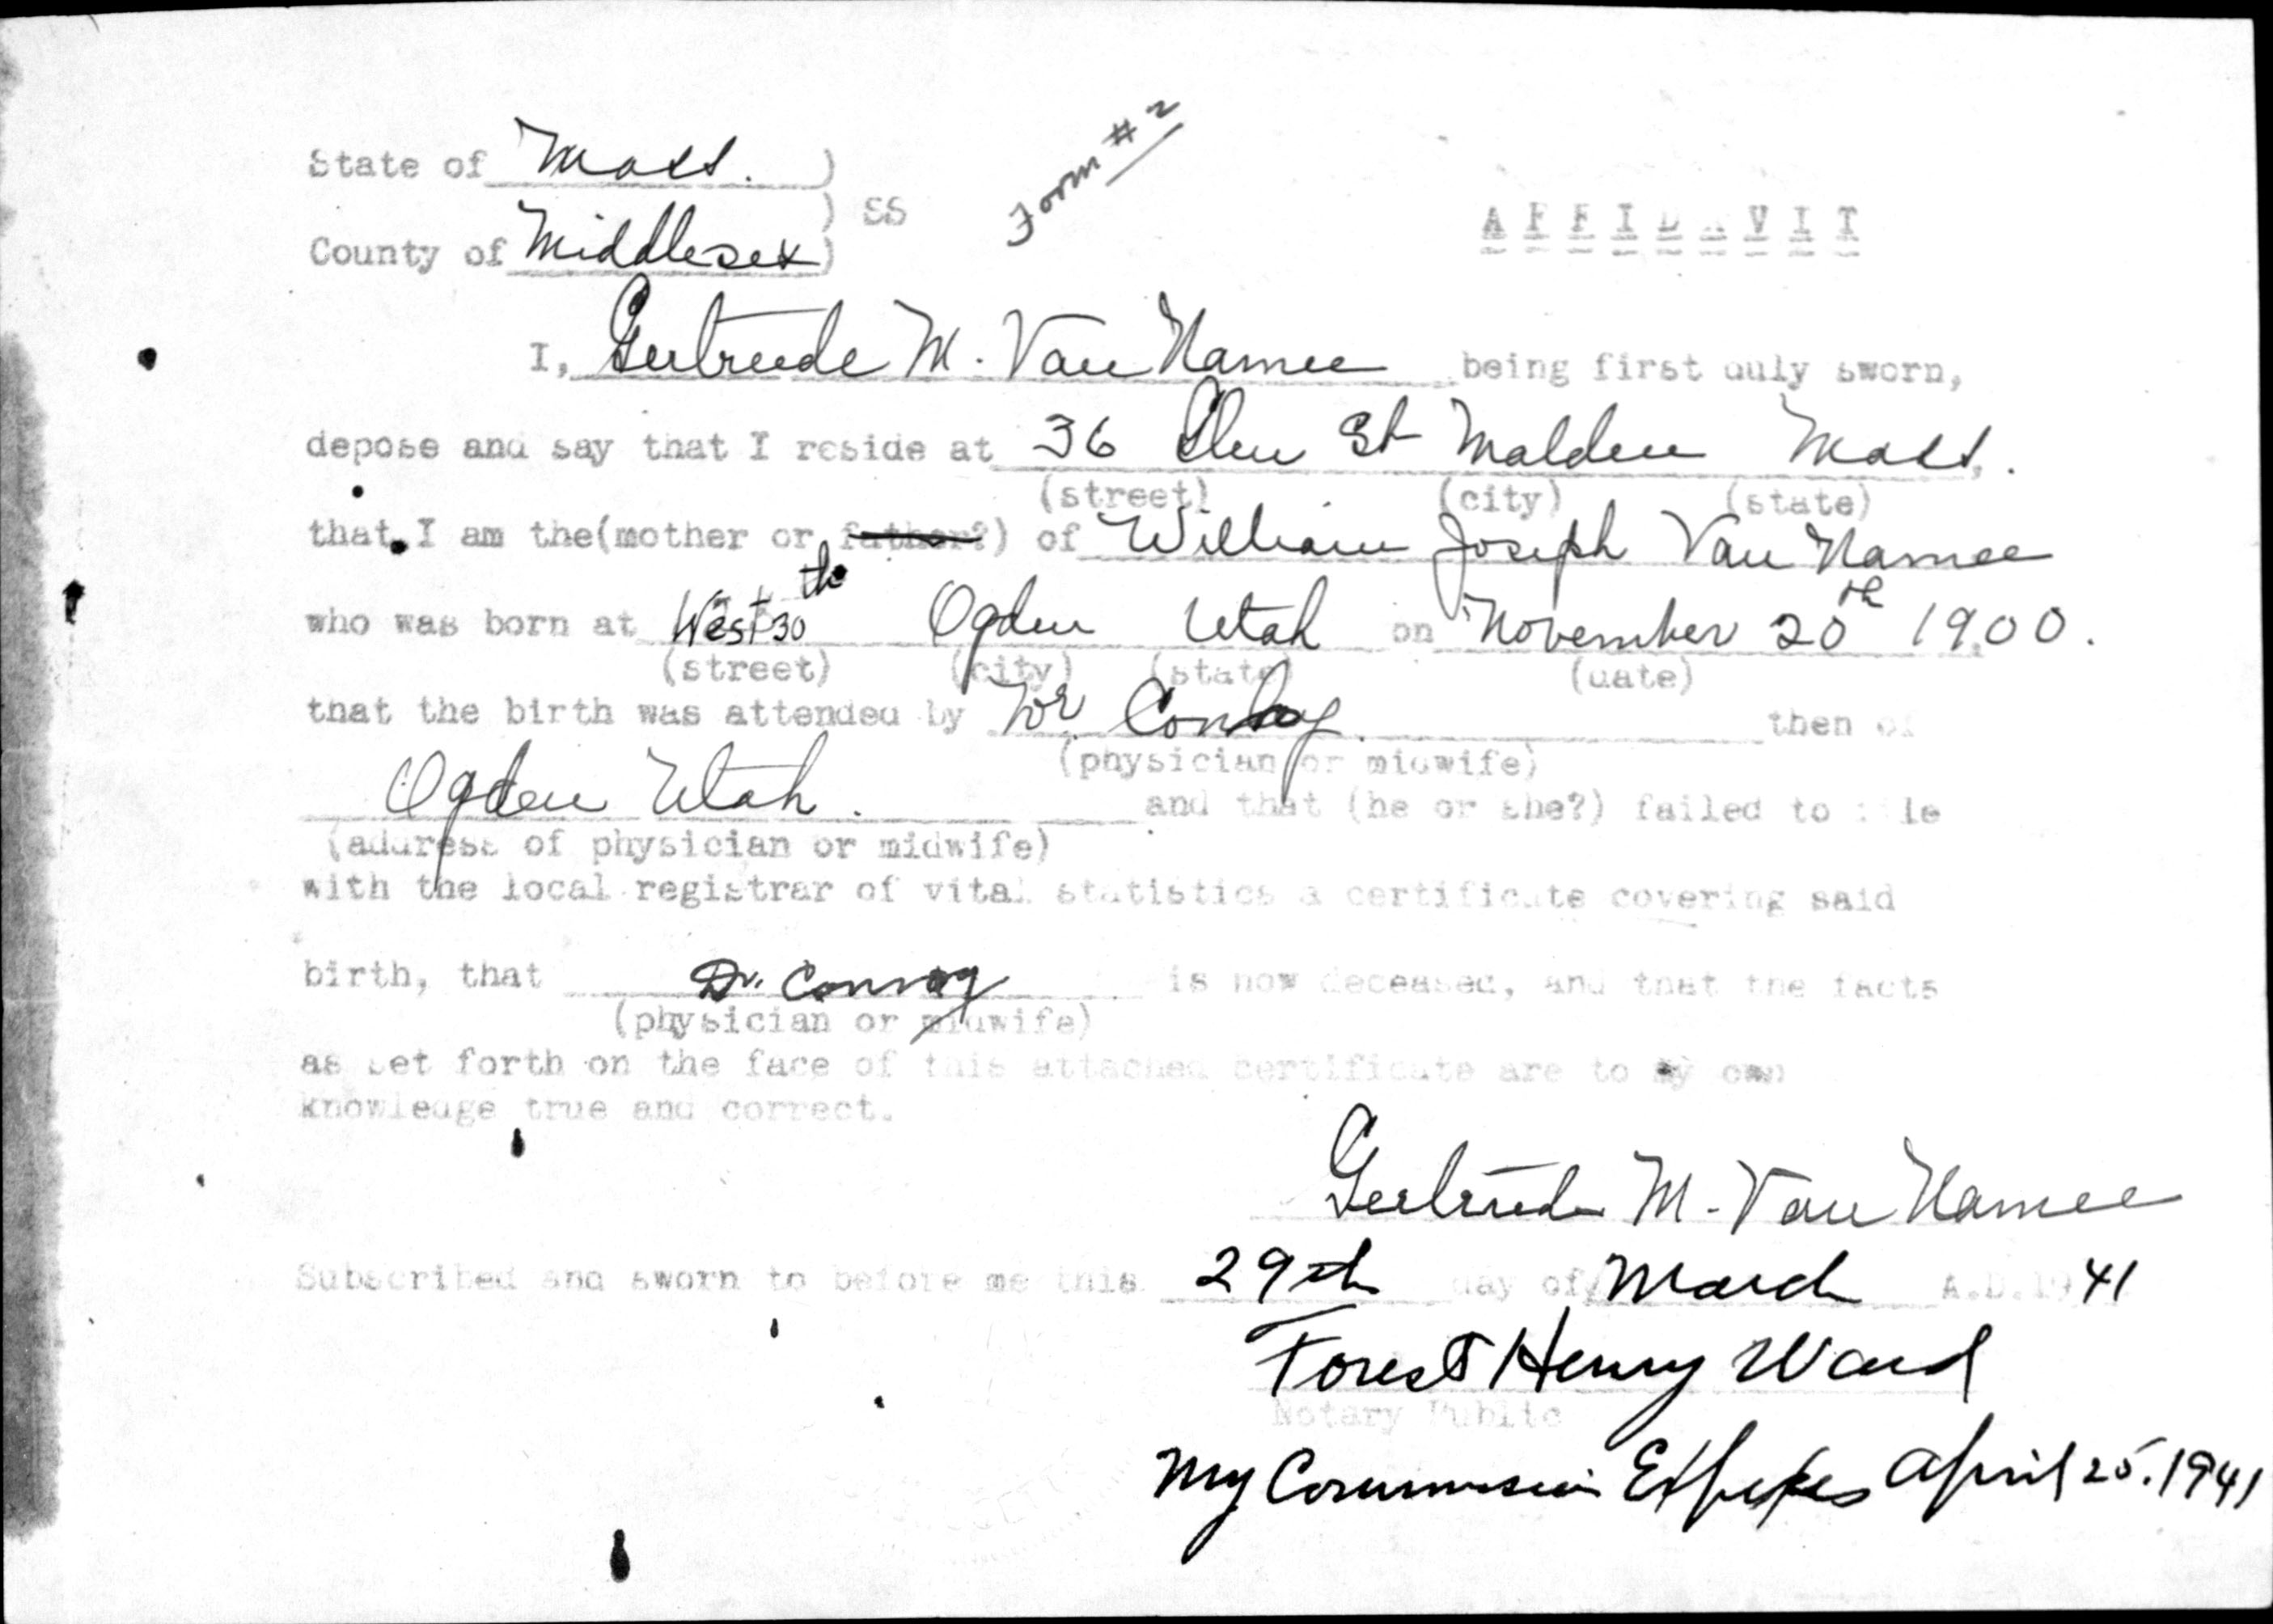 Form #2
State of Mass. )
) SS
AFFIDAVIT
County of Middlesex )
I, Gertrude M. Van Namee being first duly sworn,
depose and say that I reside at 36 Glen St Malden Mass.
(street) (city) (state)
that I am the(mother or father?) of William Joseph Van Namee
who was born at West 30th Ogden Utah on November 20th 1900.
(street) (city) (state) (date)
that the birth was attended by Dr. Conroy. then of
(physician or midwife)
Ogden Utah. and that (he or she?) failed to file
(address of physician or midwife)
with the local registrar of vital statistics a certificate covering said
birth, that Dr. Conroy is now deceased, and that the facts
(physician or midwife)
as set forth on the face of this attached certificate are to my own
knowledge true and correct.
Gertrude M. Van Namee
Subscribed and sworn to before me this 29th day of March A.D.1941
Forest Henry Ward
Notary Public
My Commission Expires April 25. 1941